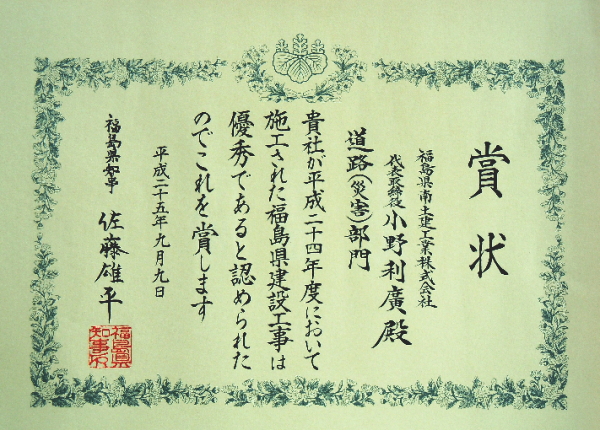 賞状
福島県南土建工業株式会社
代表取締役 小野利廣殿
道路(災害)部門
貴社が平成二十四年度において
施工された福島県建設工事は
優秀であると認められた
のでこれを賞します
平成二十五年九月九日
福島県知事 佐藤雄平
福島県
知事印